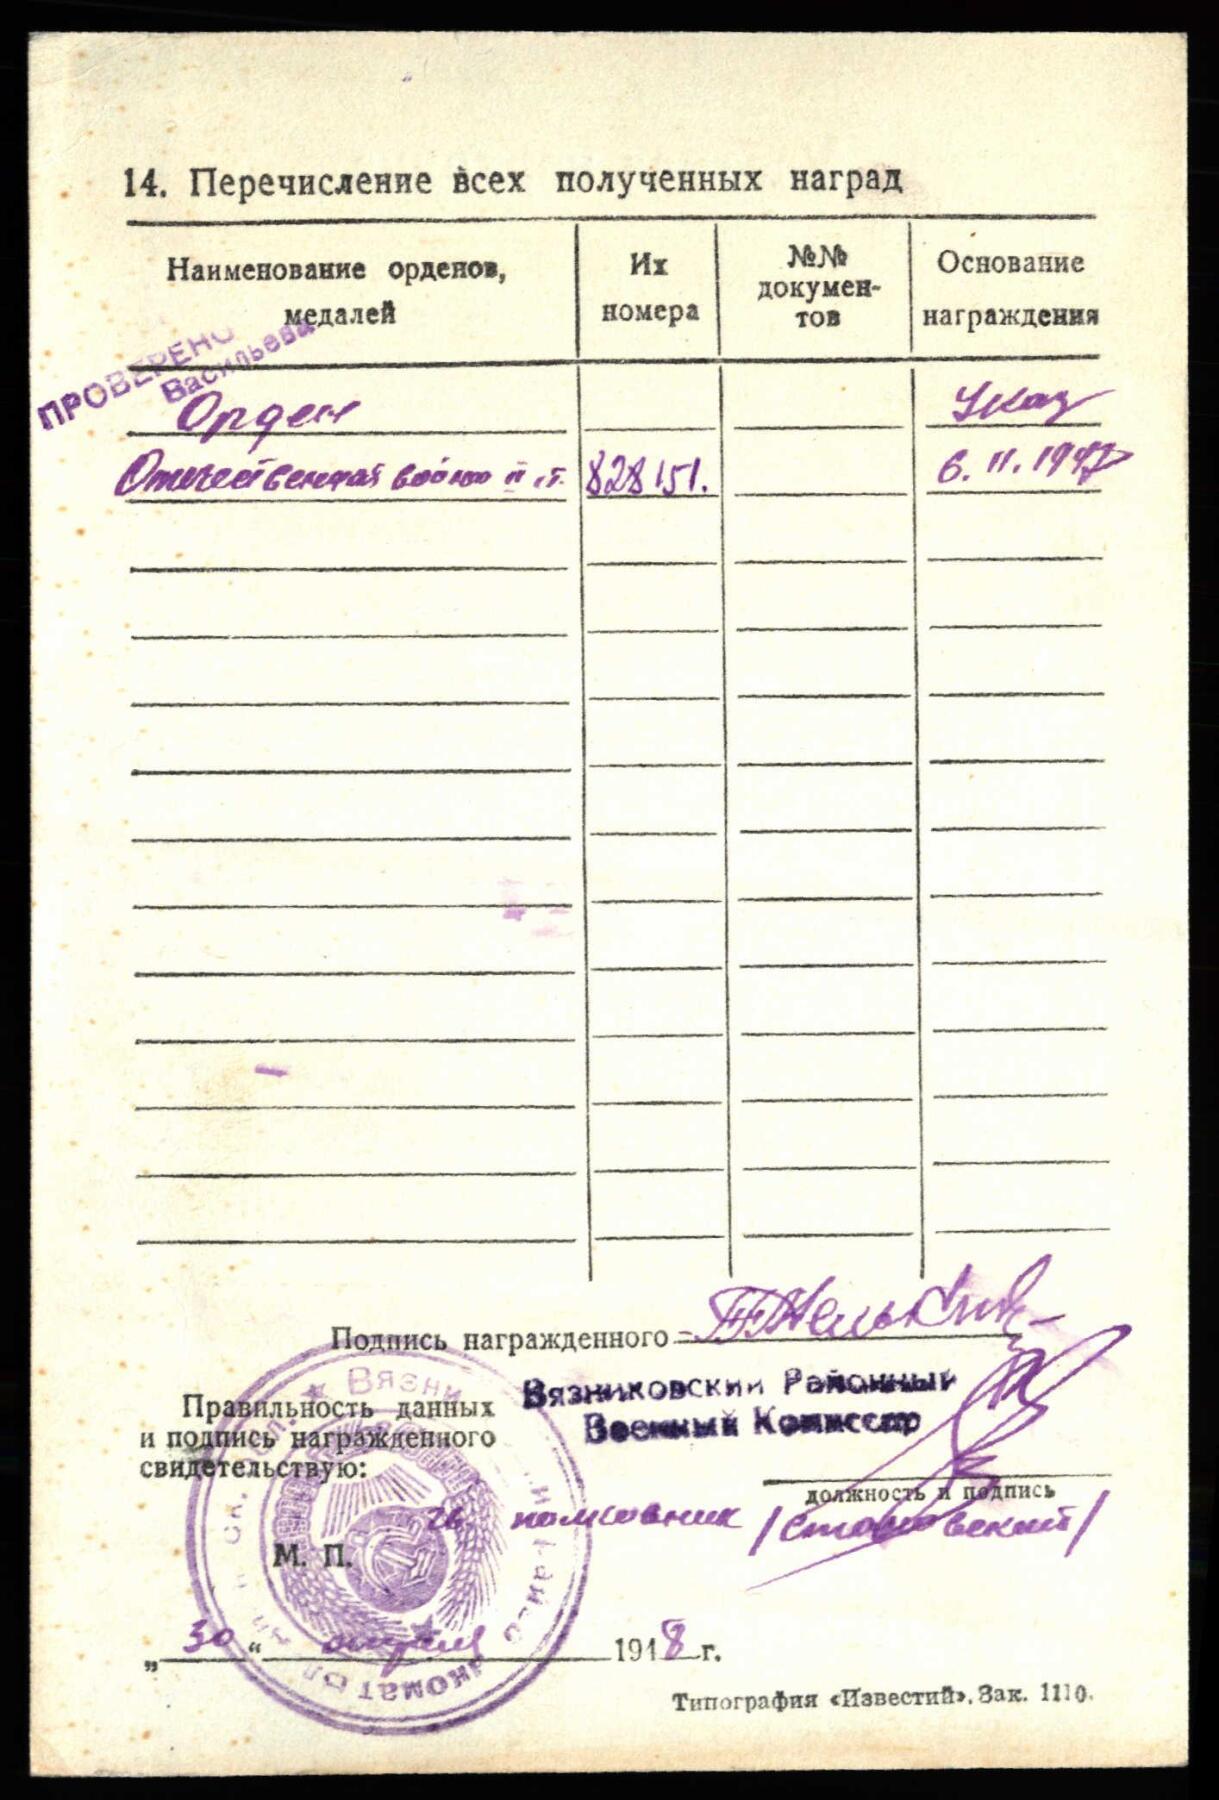 14. Перечисление всех полученных наград
Наименование орденов, медалей
Их номера
№№ докумен-
тов
Основание награждения
ПРОВЕРЕНО
Васильева
Орден
Указ
Отечественная войны II ст.
828151.
6. 11. 1947
Подпись награжденного
Вязниковский Районный
Военный Комиссар
Правильность данных
и подпись награжденного
свидетельствую:
должность и подпись
полковник
М. П.
„ 30 “ апреля 1948 г.
Типография «Известий». Зак. 1110.